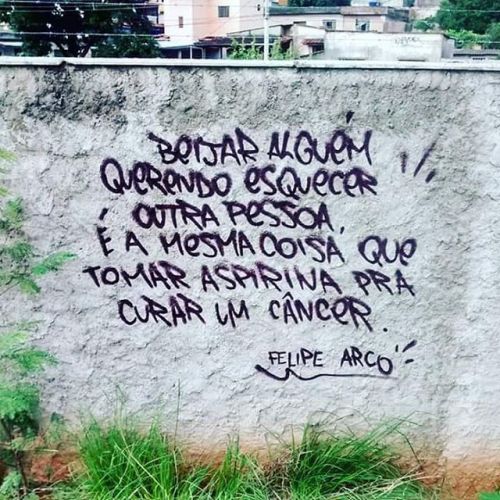 BEIJAR ALGUÉM
QUERENDO ESQUECER
OUTRA PESSOA,
É A MESMA COISA QUE
TOMAR ASPIRINA PRA
CURAR UM CÂNCER.
FELIPE ARCO